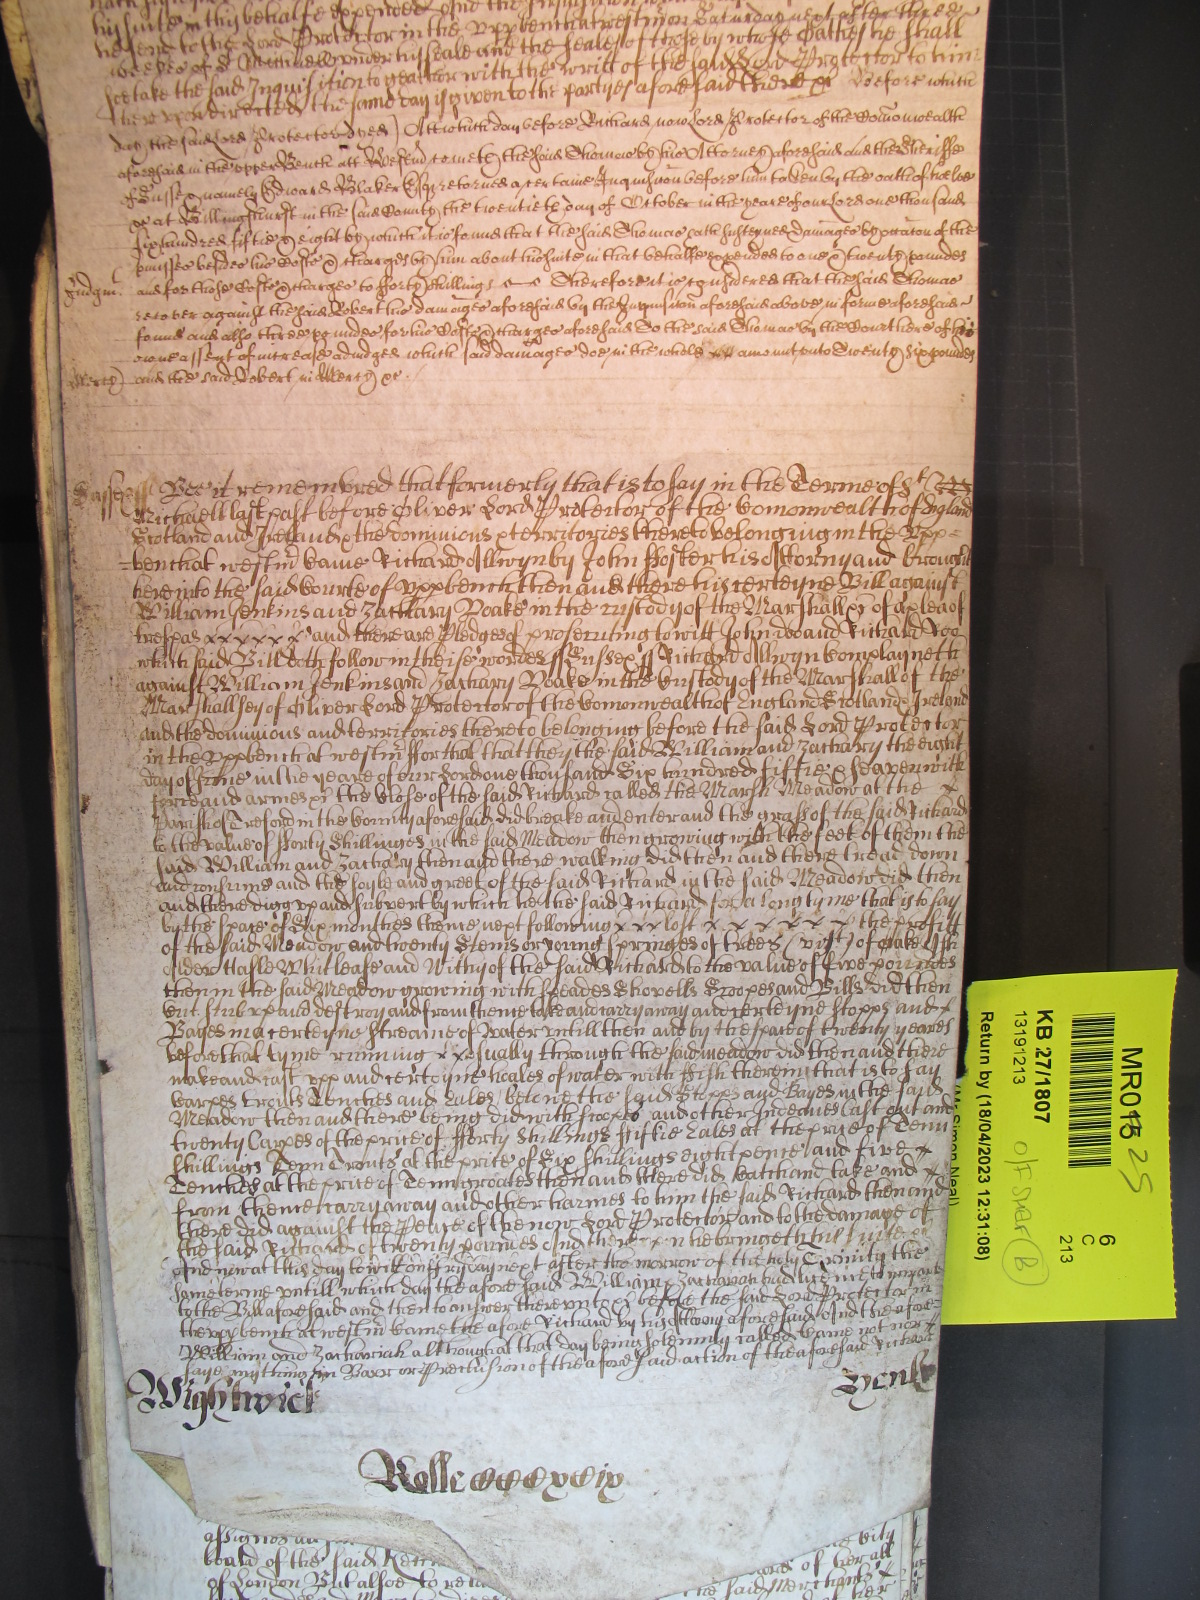 his suite in this behalfe expended And the Inquisition
he send to the Lord Protector in the Vppbench att westm on Saturday next after three
weekes of St Michaell under his seale and the seales of those by whose Oathes he shall
soe take the said Inquisition togeather with the writt of the said Lord Protector to him
thereupon directed the same day is given to the partyes aforesaid there &c before which
day the said Lord Protector dyed) Att which day before Richard now Lord Protector of the Comonwealth
aforesaid in the upper Bench att Westm cometh the said Thomas by his Attorney aforesaid and the Sheriffe
of Sussex namely Edward Blaker Esqr returned a certaine Inquisition before him taken by the oath of twelve
&c at Billinghurst in the said County the twentieth day of October in the yeare of our Lord one thousand
six hundred fiftie & eight by which it is found that the said Thomas hath susteyned damages by reason of the
premisses besides his Costs & charges by him about his suite in that behalfe expended to one & twenty pounds
and for those Costs & charges to forty shillings Therefore it is considered that the said Thomas
Judgmt
recover against the said Robert his damages aforesaid by the Inquisition aforesaid above in forme aforesaid
found and also three pounds for his Costs & charges aforesaid to the said Thomas by the Court here of his
owne assent of increase adiudged which said damages doe in the whole amount unto Twenty six poundes
Mercy) and the said Robert in Mercy &c.
Sussex ss Bee it remembred that formerly that is to say in the Terme of St
Michaell last past before Oliver Lord Protector of the Comonwealth of England
Scotland and Ireland & the dominions & territories thereto belonging in the Upp
bench at westm Came Richard Allwyn by John Foster his Attorny and brought
here into the said Courte of Vppbench then and there his certeyne Bill against
William Jenkins and Zachary Boake in the custody of the Marshall &c of a plea of
trespas x x x x x x and there are Pledges of prosecuting to witt John doo and Richard Roo
which said Bill doth follow in these wordes ss Sussex ss Richard Allwyn Complayneth
against William Jenkins and Zachary Boake in the Custody of the Marshall of the
Marshallsey of Oliver Lord Protector of the Comonwealth of England Scotland & Ireland
and the dominions and territories thereto belonging before the said Lord Protector
in the Vppbench at westm for that that they the said William and Zachary the eight
day of June in the yeare of our Lord one thousand Six hundred fiftie & seaven with
force and armes &c the Close of the said Richard called the Marsh Meadow at the x
Parish of Treford in the County aforesaid did breake and enter and the grass of the said Richard
to the value of Forty Shillinges in the said Meadow then growing with the feet of them the
said William and Zachary then and there walking did then and there tread down
and consume and the soyle and greet of the said Richard in the said Meadow did then
and there digg vp and subvert by which hee the said Richard for a long tyme that is to say
by the space of Six monthes thence next following x x x lost x x x x x x the profitt
of the said Meadow and twenty Stems or young springes of trees (vizt) of Oake Ash
Alder Hasle Whitleafe and Withy of the said Richards to the value of five poundes
then in the said Meadow growing with Speades Shovells Scoopes and Bills did then
cut stub vp and destroy and from thence take and carry away and certeyne stopps and x
Bayes in a certeyne Streame of Water untill then and by the space of twenty yeares
before that tyme running x x vsually through the said meadow did then and there
make and cast vpp and certeyne holes of water with ffish therein that is to say
Carpes trouts Tenches and Eales belowe the said Stopps and Bayes in the said
Meadow then and there being did with scoopes and other Engines Cast out and
twenty Carpes of the price of fforty shillings ffiftie Eales at the price of Tenn
shillings Tenn Trouts at the price of Six shillings eight pence and five x
Tenches at the price of Tenn groates then and there did Catch and take and x
from thence carry away and other harmes to him the said Richard then and
there did against the Peace of the now Lord Protector and to the damage of
the said Richard of twenty poundes And thereupon he bringeth his suite &c
And now at this day to witt on ffryday next after the morrow of the holy Trinity the
same terme untill which day the aforesaid William & Zachariah had licence to imparle
to the Bill aforesaid and then to answer thereunto &c before the said Lord Protector in
the vppbench at westm Came the afore Richard by his Attorny aforesaid And the afore
William and Zachariah although at that day being solemnly called Came not nor x
saye anything in Barr or Preclusion of the aforesaid action of the aforesaid Richard
Wightwick
Rolle
board of the said
of London But alsoe to
of her all
the said Merchants
MR01 25
6
C
213
KB 27/1807
13191213
Return by (18/04/2023 12:31:08)
(Mr Simon Neal)